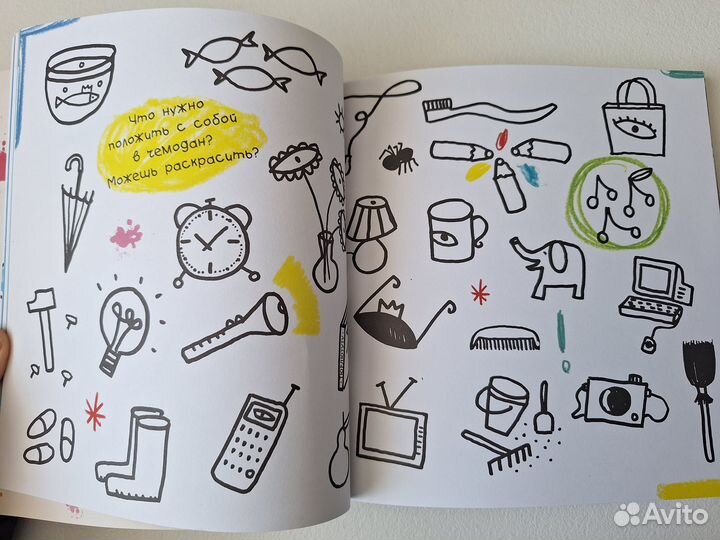 Что нужно
положить с собой
в чемодан?
Можешь раскрасить?
Avito